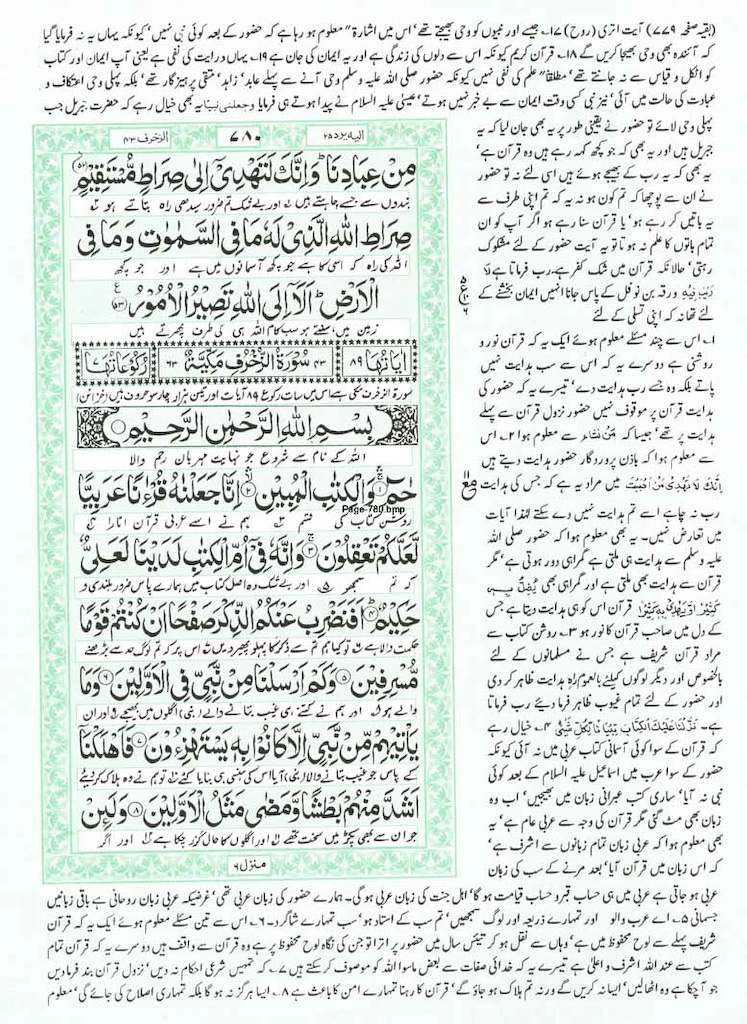 (بقیہ صفحہ ۷۷۹) آیت اتری (روح) ۱۷؎ جیسے اور نبیوں کو وحی بھیجتے تھے' اس میں اشارۃ" معلوم ہو رہا ہے کہ حضور کے بعد کوئی نبی نہیں' کیونکہ یہاں یہ نہ فرمایا گیا
کہ آئندہ بھی وحی بھیجا کریں گے ۱۸؎ قرآن کریم کیونکہ اس سے دلوں کی زندگی ہے اور یہ ایمان کی جان ہے ۱۹؎ یہاں درایت کی نفی ہے یعنی آپ ایمان اور کتاب
کو اٹکل و قیاس سے نہ جانتے تھے' مطلقاً" علم کی نفی نہیں کیونکہ حضور صلی اللہ علیہ وسلم وحی آنے سے پہلے عابد' زاہد' متقی پرہیزگار تھے' بلکہ پہلی وحی اعتکاف و
عبادت کی حالت میں آئی' نیز نبی کسی وقت ایمان سے بے خبر نہیں ہوتے' عیسیٰ علیہ السلام نے پیدا ہوتے ہی فرمایا وجعلنی نبیا یہ بھی خیال رہے کہ حضرت جبریل جب
پہلی وحی لائے تو حضور نے یقینی طور پر یہ بھی جان لیا کہ یہ
جبریل ہیں اور یہ بھی کہ جو کچھ کہہ رہے ہیں وہ قرآن ہے'
یہ بھی کہ یہ رب کے بھیجے ہوئے ہیں اسی لئے نہ تو حضور
نے ان سے پوچھا کہ تم کون ہو نہ یہ کہ تم اپنی طرف سے
یہ باتیں کر رہے ہو' یا قرآن سنا رہے ہو اگر آپ کو ان
تمام باتوں کا علم نہ ہوتا تو یہ آیت حضور کے لئے مشکوک
رہتی' حالانکہ قرآن میں شک کفر ہے، رب فرماتا ہے لا
رَيْبَ فِيْهِ ورقہ بن نوفل کے پاس جانا انہیں ایمان بخشنے کے
لئے تھا نہ کہ اپنی تسلی کے لئے
۱؎ اس سے چند مسئلے معلوم ہوئے ایک یہ کہ قرآن نور و
روشنی ہے دوسرے یہ کہ اس سے سب ہدایت نہیں
پاتے بلکہ وہ جسے رب ہدایت دے' تیسرے یہ کہ حضور کی
ہدایت قرآن پر موقوف نہیں حضور نزول قرآن سے پہلے
ہدایت پر تھے' جیسا کہ مَنْ نَّشَاءُ سے معلوم ہوا ۲؎ اس
سے معلوم ہوا کہ باذن پروردگار حضور ہدایت دیتے ہیں
اِنَّكَ لَا تَهْدِىْ مَنْ اَحْبَبْتَ میں مراد یہ ہے کہ جس کی ہدایت
رب نہ چاہے اسے تم ہدایت نہیں دے سکتے لہٰذا آیات
میں تعارض نہیں۔ یہ بھی معلوم ہوا کہ حضور صلی اللہ
علیہ وسلم سے ہدایت ہی ملتی ہے گمراہی دور ہوتی ہے' مگر
قرآن سے ہدایت بھی ملتی ہے اور گمراہی بھی يُضِلُّ بِهٖ
كَثِيْرًا وَّيَهْدِىْ بِهٖ كَثِيْرًا قرآن اس کو ہی ہدایت دیتا ہے جس
کے دل میں صاحب قرآن کا نور ہو ۳؎ روشن کتاب سے
مراد قرآن شریف ہے جس نے مسلمانوں کے لئے
بالخصوص اور دیگر لوگوں کیلئے بالعموم راہ ہدایت ظاہر کر دی
اور حضور کے لئے تمام غیوب ظاہر فرما دیئے رب فرماتا
ہے۔ نَزَّلْنَا عَلَيْكَ الْكِتَابَ تِبْيَانًا لِّكُلِّ شَىْءٍ ۴؎ خیال رہے
کہ قرآن کے سوا کوئی آسمانی کتاب عربی میں نہ آئی کیونکہ
حضور کے سوا عرب میں اسماعیل علیہ السلام کے بعد کوئی
نبی نہ آیا' ساری کتب عبرانی زبان میں بھیجیں' اب وہ
زبان بھی مٹ گئی مگر قرآن کی وجہ سے عربی عام ہے' یہ
بھی معلوم ہوا کہ عربی زبان تمام زبانوں سے اشرف ہے'
کہ اس زبان میں قرآن آیا' بعد مرنے کے سب کی زبان
الیہ یرد ۲۵
۷۸۰
الزخرف ۴۳
مِنْ عِبَادِنَا ؕ وَ اِنَّكَ لَتَهْدِیْۤ اِلٰى صِرَاطٍ مُّسْتَقِیْمٍ ﴿۵۲﴾
بندوں سے جسے چاہتے ہیں ۱؎ اور بے شک تم ضرور سیدھی راہ بتاتے ہو ۲؎
صِرَاطِ اللّٰهِ الَّذِیْ لَهٗ مَا فِی السَّمٰوٰتِ وَ مَا فِی
اللہ کی راہ کہ اسی کا ہے جو کچھ آسمانوں میں ہے اور جو کچھ
الْاَرْضِ ؕ اَلَاۤ اِلَى اللّٰهِ تَصِیْرُ الْاُمُوْرُ ﴿۵۳﴾
زمین میں، سنتے ہو سب کام اللہ ہی کی طرف پھرتے ہیں
اٰیَاتُهَا ۸۹ ۴۳ سُوْرَةُ الزُّخْرُفِ مَكِّیَّةٌ ۶۳ رُكُوْعَاتُهَا ۷
سورۃ الزخرف مکی ہے اس میں سات رکوع ۸۹ آیات اور تین ہزار چار سو حروف ہیں (خزائن)
بِسْمِ اللّٰهِ الرَّحْمٰنِ الرَّحِیْمِ
اللہ کے نام سے شروع جو نہایت مہربان رحم والا
حٰمٓ ﴿۱﴾ وَ الْكِتٰبِ الْمُبِیْنِ ﴿۲﴾ اِنَّا جَعَلْنٰهُ قُرْءٰنًا عَرَبِیًّا
Page-780.bmp
روشن کتاب کی قسم ۳؎ ہم نے اسے عربی قرآن اتارا ۴؎
لَّعَلَّكُمْ تَعْقِلُوْنَ ﴿۳﴾ وَ اِنَّهٗ فِیْۤ اُمِّ الْكِتٰبِ لَدَیْنَا لَعَلِیٌّ
کہ تم سمجھو ۵؎ اور بے شک وہ اصل کتاب میں ہمارے پاس ضرور بلندی و
حَكِیْمٌ ﴿۴﴾ اَفَنَضْرِبُ عَنْكُمُ الذِّكْرَ صَفْحًا اَنْ كُنْتُمْ قَوْمًا
حکمت والا ہے ۶؎ تو کیا ہم تم سے ذکر کا پہلو پھیر دیں ۷؎ اس پر کہ تم لوگ حد سے بڑھنے
مُّسْرِفِیْنَ ﴿۵﴾ وَ كَمْ اَرْسَلْنَا مِنْ نَّبِیٍّ فِی الْاَوَّلِیْنَ ﴿۶﴾ وَ مَا
والے ہو ۸؎ اور ہم نے کتنے ہی غیب بتانے والے (نبی) اگلوں میں بھیجے ۹؎ اور ان
یَاْتِیْهِمْ مِّنْ نَّبِیٍّ اِلَّا كَانُوْا بِهٖ یَسْتَهْزِءُوْنَ ﴿۷﴾ فَاَهْلَكْنَاۤ
کے پاس جو غیب بتانے والا (نبی) آیا اس کی ہنسی ہی بنایا کئے ۱۰؎ تو ہم نے وہ ہلاک کر دیئے
اَشَدَّ مِنْهُمْ بَطْشًا وَّ مَضٰى مَثَلُ الْاَوَّلِیْنَ ﴿۸﴾ وَ لَىِٕنْ
جو ان سے بھی پکڑ میں سخت تھے ۱۱؎ اور اگلوں کا حال گزر چکا ہے ۱۲؎ اور اگر
منزل ۶
عربی ہو جاتی ہے عربی میں ہی حساب قبر و حساب قیامت ہو گا' اہل جنت کی زبان عربی ہو گی۔ ہمارے حضور کی زبان عربی تھی' غرضیکہ عربی زبان روحانی ہے باقی زبانیں
جسمانی ۵؎ اے عرب والو اور تمہارے ذریعہ اور لوگ سمجھیں' تم سب کے استاد ہو' سب تمہارے شاگرد۔ ۶؎ اس سے تین مسئلے معلوم ہوئے ایک یہ کہ قرآن
شریف پہلے سے لوح محفوظ میں ہے' وہاں سے نقل ہو کر تیئس سال میں حضور پر اترا تو جن کی نگاہ لوح محفوظ پر ہے وہ قرآن سے واقف ہیں دوسرے یہ کہ قرآن تمام
کتب سے عند اللہ اشرف و اعلیٰ ہے تیسرے یہ کہ خدائی صفات سے بعض ماسوا اللہ کو موصوف کر سکتے ہیں ۷؎ کہ تمہیں شرعی احکام نہ دیں' نزول قرآن بند فرما دیں
جو آچکا ہے وہ اٹھالیں' ایسا نہ کریں گے ورنہ تم ہلاک ہو جاؤ گے' قرآن کا رہنا تمہارے امن کا باعث ہے ۸؎ ایسا ہرگز نہ ہو گا بلکہ تمہاری اصلاح کی جائے گی' معلوم